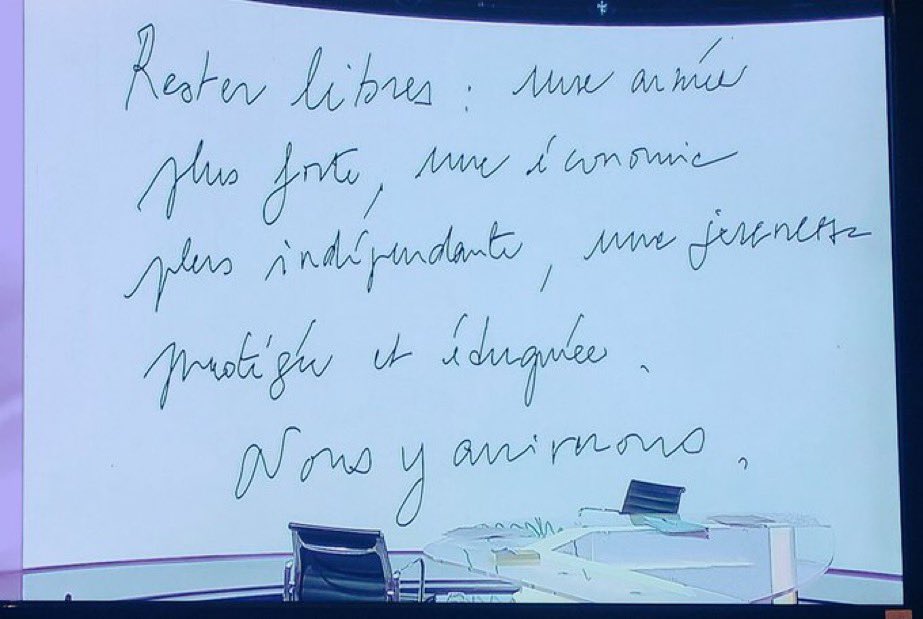 Rester libres : une armée
plus forte, une économie
plus indépendante, une jeunesse
protégée et éduquée.
Nous y arriverons.